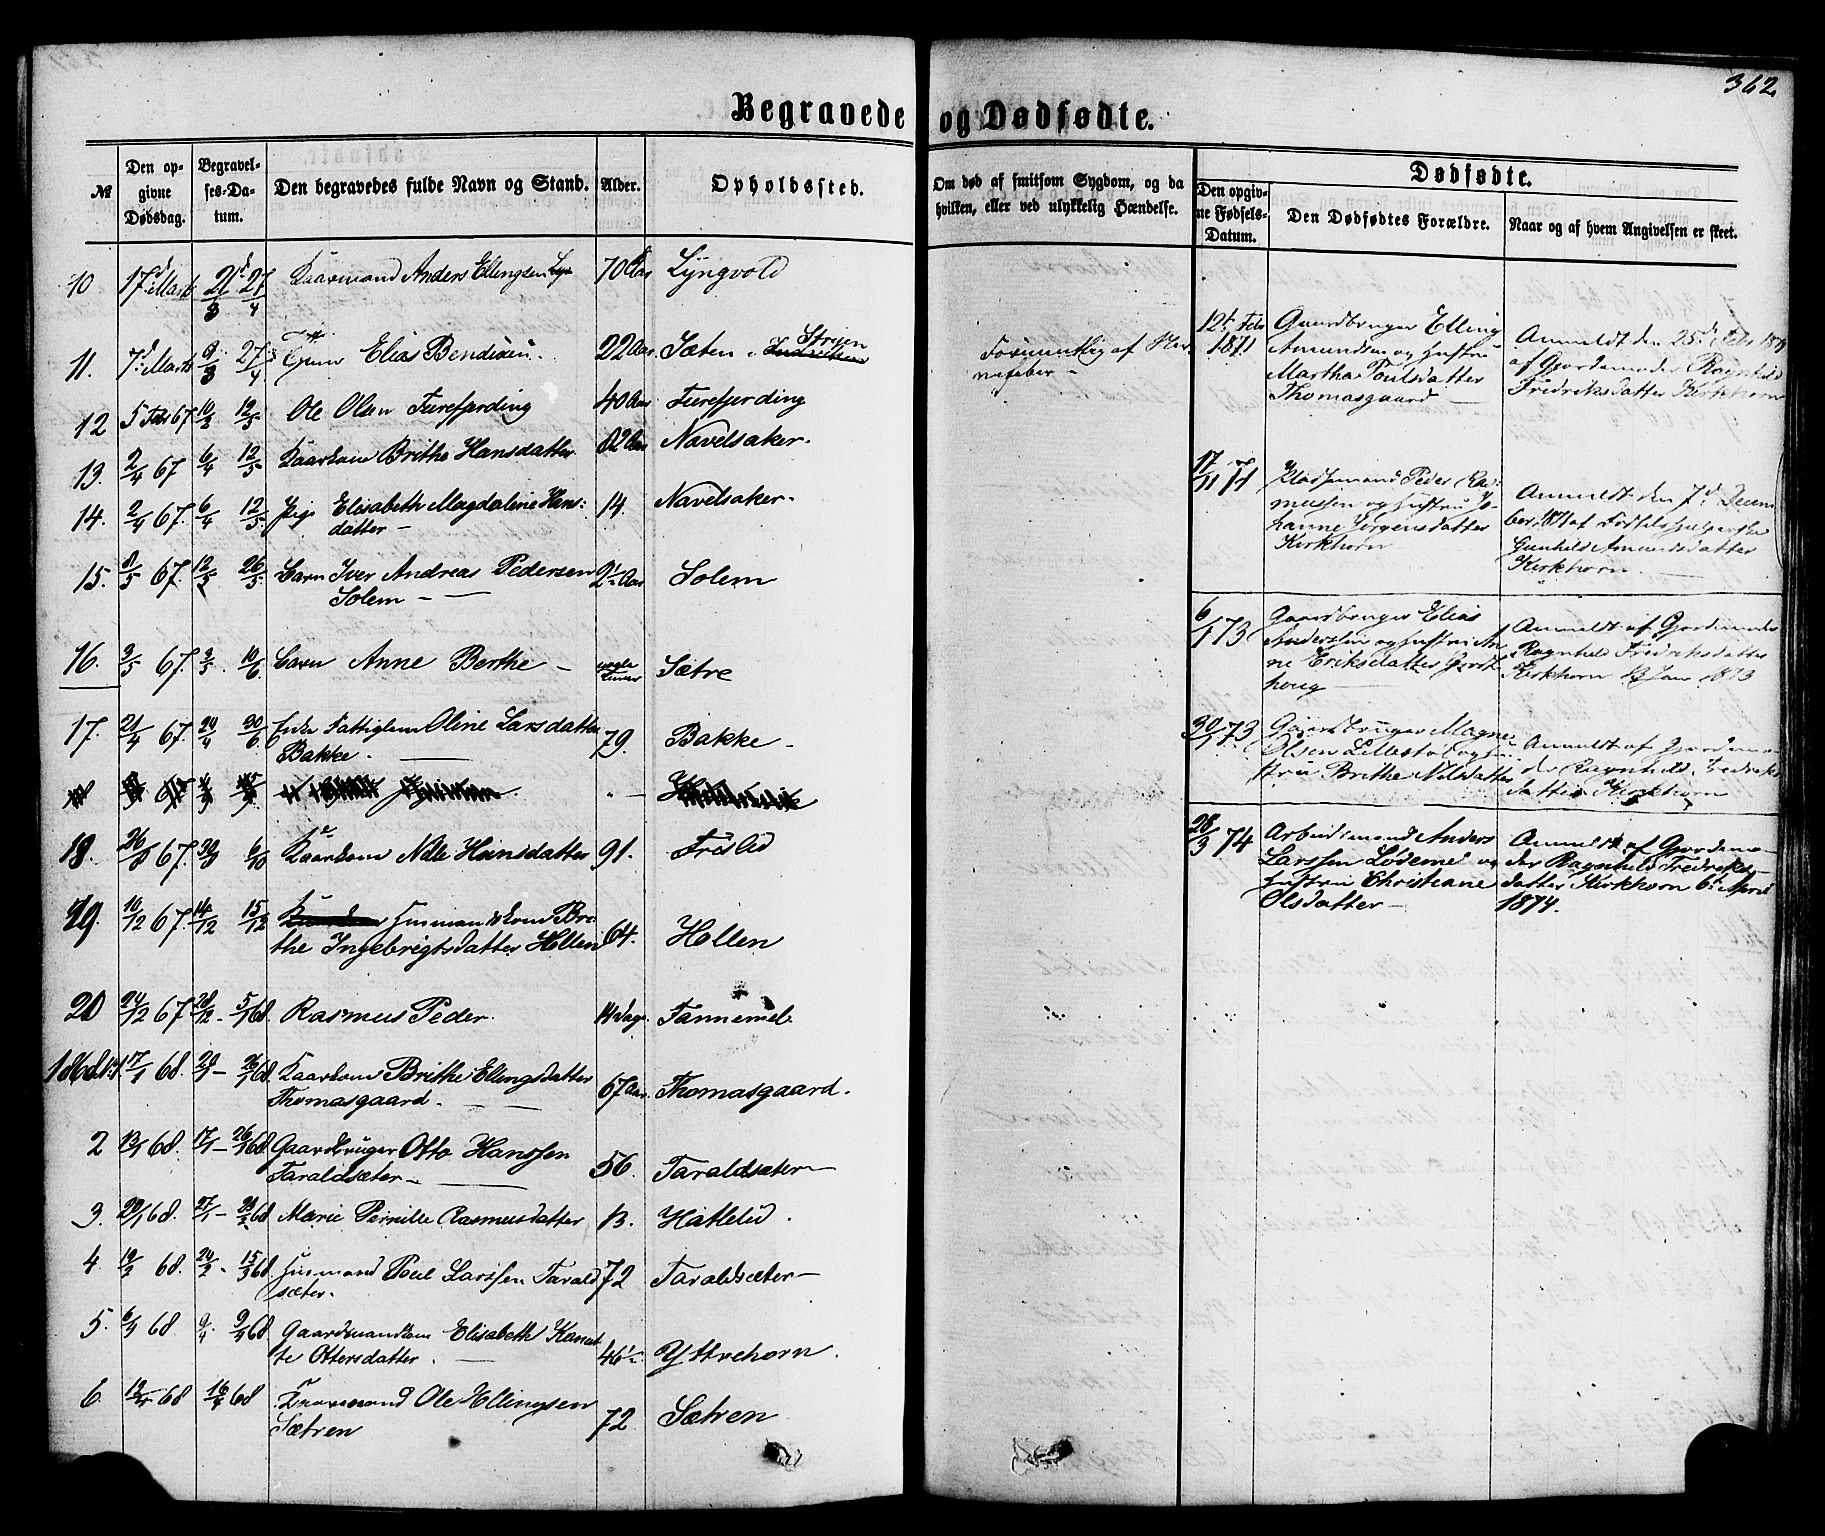 362
Begravede og Dødfødte.
№
Den opgivne Dødsdag.
Begravelses-Datum.
Den begravedes fulde Navn og Stand.
Alder.
Opholdssted.
Om død af smitsom Sygdom, og da hvilken, eller ved ulykkelig Hændelse.
Dødfødte.
Den opgivne Fødsels-Datum.
Den Dødfødtes Forældre.
Naar og af hvem Angivelsen er skeet.
10 17d Marts 21d/3 27/4 Kaarmand Anders Ellingsen 70 Aar Lyngvold
11. 7d Marts 27/4 Elias Bendixen 22 Aar Sæten
12 5 Feb 67 10/2 12/5 Ole Olsen Furefjording 40 Aar Furefjording
13. 2/4 67 6/4 12/5 Kaarkone Brithe Hansdatter 82 Aar Navelsaker.
14. 2/4 67. 6/4 12/5 Pige Elisabeth Magdaline Hans-
datter — 14. Navelsaker.
15. 8/5 67. 12/5 26/5 Barn Iver Andreas Pedersen 2½ Aar Solem
Solem —
16. 3/5 67. 10/6 Barn Anne Berthe — Sætre
17. 21/4 67. 24/4 30/6 Enke Fattiglem Oline Larsdatter
Bakke. — 79. Bakke —
18. 26/8 67. 30/8 6/10 Kaarkone Nille Hansdatter 91. Frislid
19. 10/12 67 14/12 15/12 Husmandskone Bri-
the Ingebrigtsdatter Hollen 64. Hollen
20 24/12 67 28/12 - 5/1 68. Rasmus Peder. 14 Dage Tannemel.
1868 №1. 17/1 68. 20/1 - 26/1 68. Kaarkone Brithe Ellingsdatter
Thomasgaard. — 67 Aar. Thomasgaard.
2 13/1 68. 17/1 - 26/1 68 Gaardbruger Otto Hanssen
Taraldsæter — 56. Taraldsæter
3. 20/1 68. 27/1 - 68 Marie Pernille Rasmusdatter 13. Hatlelid.
4. 19/2 68. 24/2 - 15/3 68 Husmand Poul Larssen Tarald
sæter. 72 Taraldsæter —
5. 6/4 68 9/4. 9/4 68. Gaardmandkone Elisabeth Kanut-
te Ottersdatter. — 46½ Yttrehorn.
6. 68 68 Kaarmand Ole Ellingsen
Sætren 72 Sætren
Formentlig af Ner-
vefeber —
12t Feb 1871
Gaardbruger Elling
Amundsen og Hustru
Martha Poulsdatter
Thomasgaard —
Anmeldt den 25d Feb 1871
af Gjordemoder Ragnhild
Fredriksdatter Kirkhorn
17/11 71
Pladsemand Peder Ras-
mussen og Hustru Jo-
hanne Jørgensdatter
Kirkhorn —
Anmeldt den 7d Decem
ber 1871 af Fødselshjelperske
Gunhild Amundsdatter
Kirkhorn. —
6/1 73
Gaardbruger Elias
Anderssen og Hustru An-
ne Eriksdatter Hjort-
houg —
Anmeldt af Gjordemoder
Ragnhild Fredriksdatter
Kirkhorn 13 Jan 1873
30/1 73
Gaardbruger Magne
Olsen Lillestøl og Hu-
stru Brithe Nilsdatter
Anmeldt af Gjordemo-
der Ragnhild Fredriks-
datter Kirkhorn
28/3 74
Arbeidsmand Anders
Larssen Lødemel og
Hustru Christiane
Olsdatter —
Anmeldt af Gjordemo-
der Ragnhild Fredriks-
datter Kirkhorn 6t April
1874.